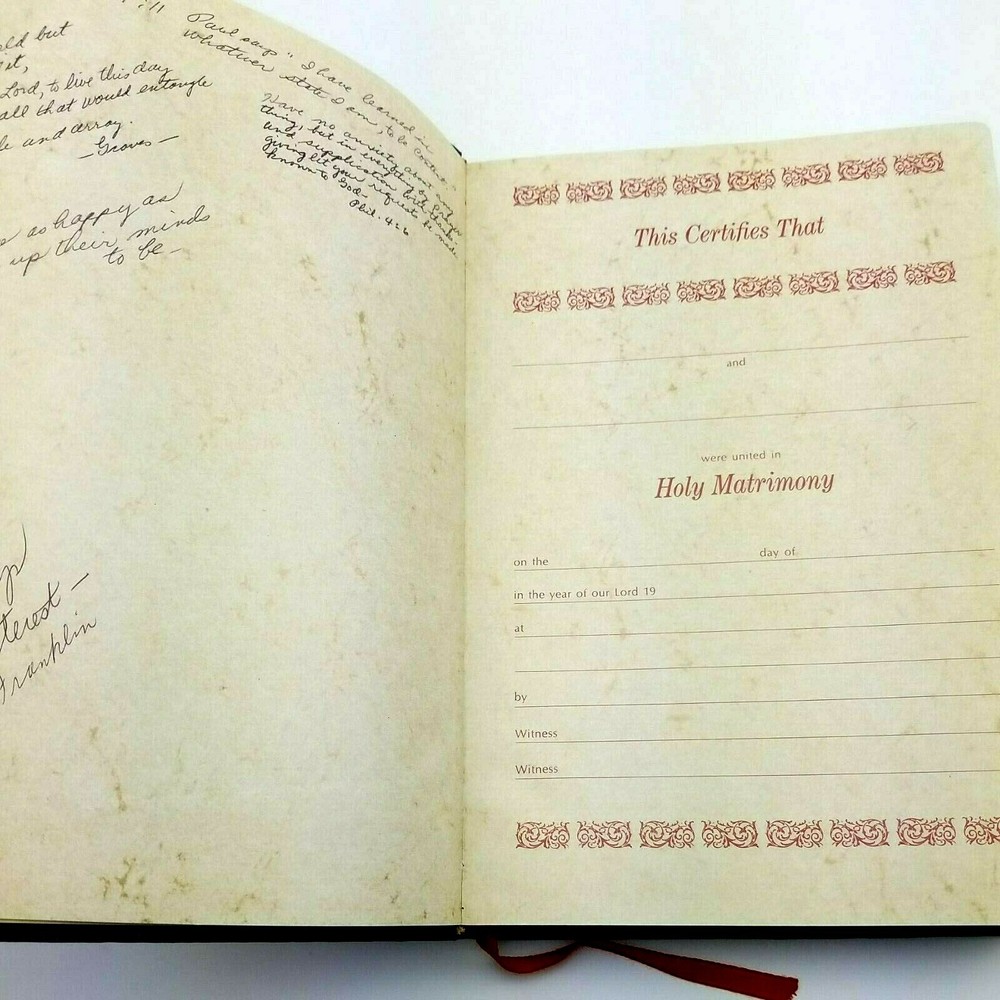 but
it,
Lord, to live this day
all that would entangle
and array.
- Graves -
as happy as
up their minds
to be -
Franklin
Paul says "I have learned in
whatever state I am, to be content."
Have no anxiety about
thing, but in everything by prayer
and supplication with thanks-
giving let your requests be made
known to God.
Phil. 4:6
This Certifies That
and
were united in
Holy Matrimony
on the day of
in the year of our Lord 19
at
by
Witness
Witness